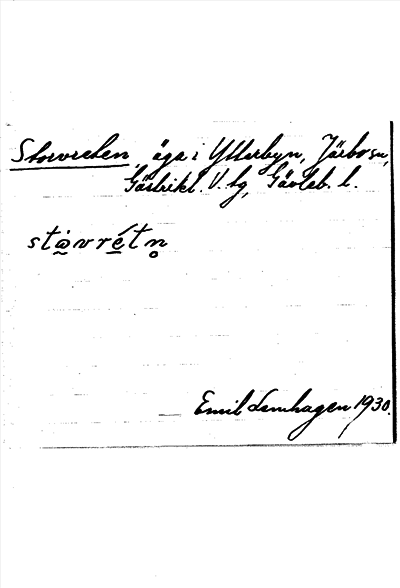 Storvreten, äga i Ytterbyn, Järbo sn,
Gästrikl. V. tg, Gävleb. l.
stå̀vrét​n̥
Emil Lemhagen 1930.